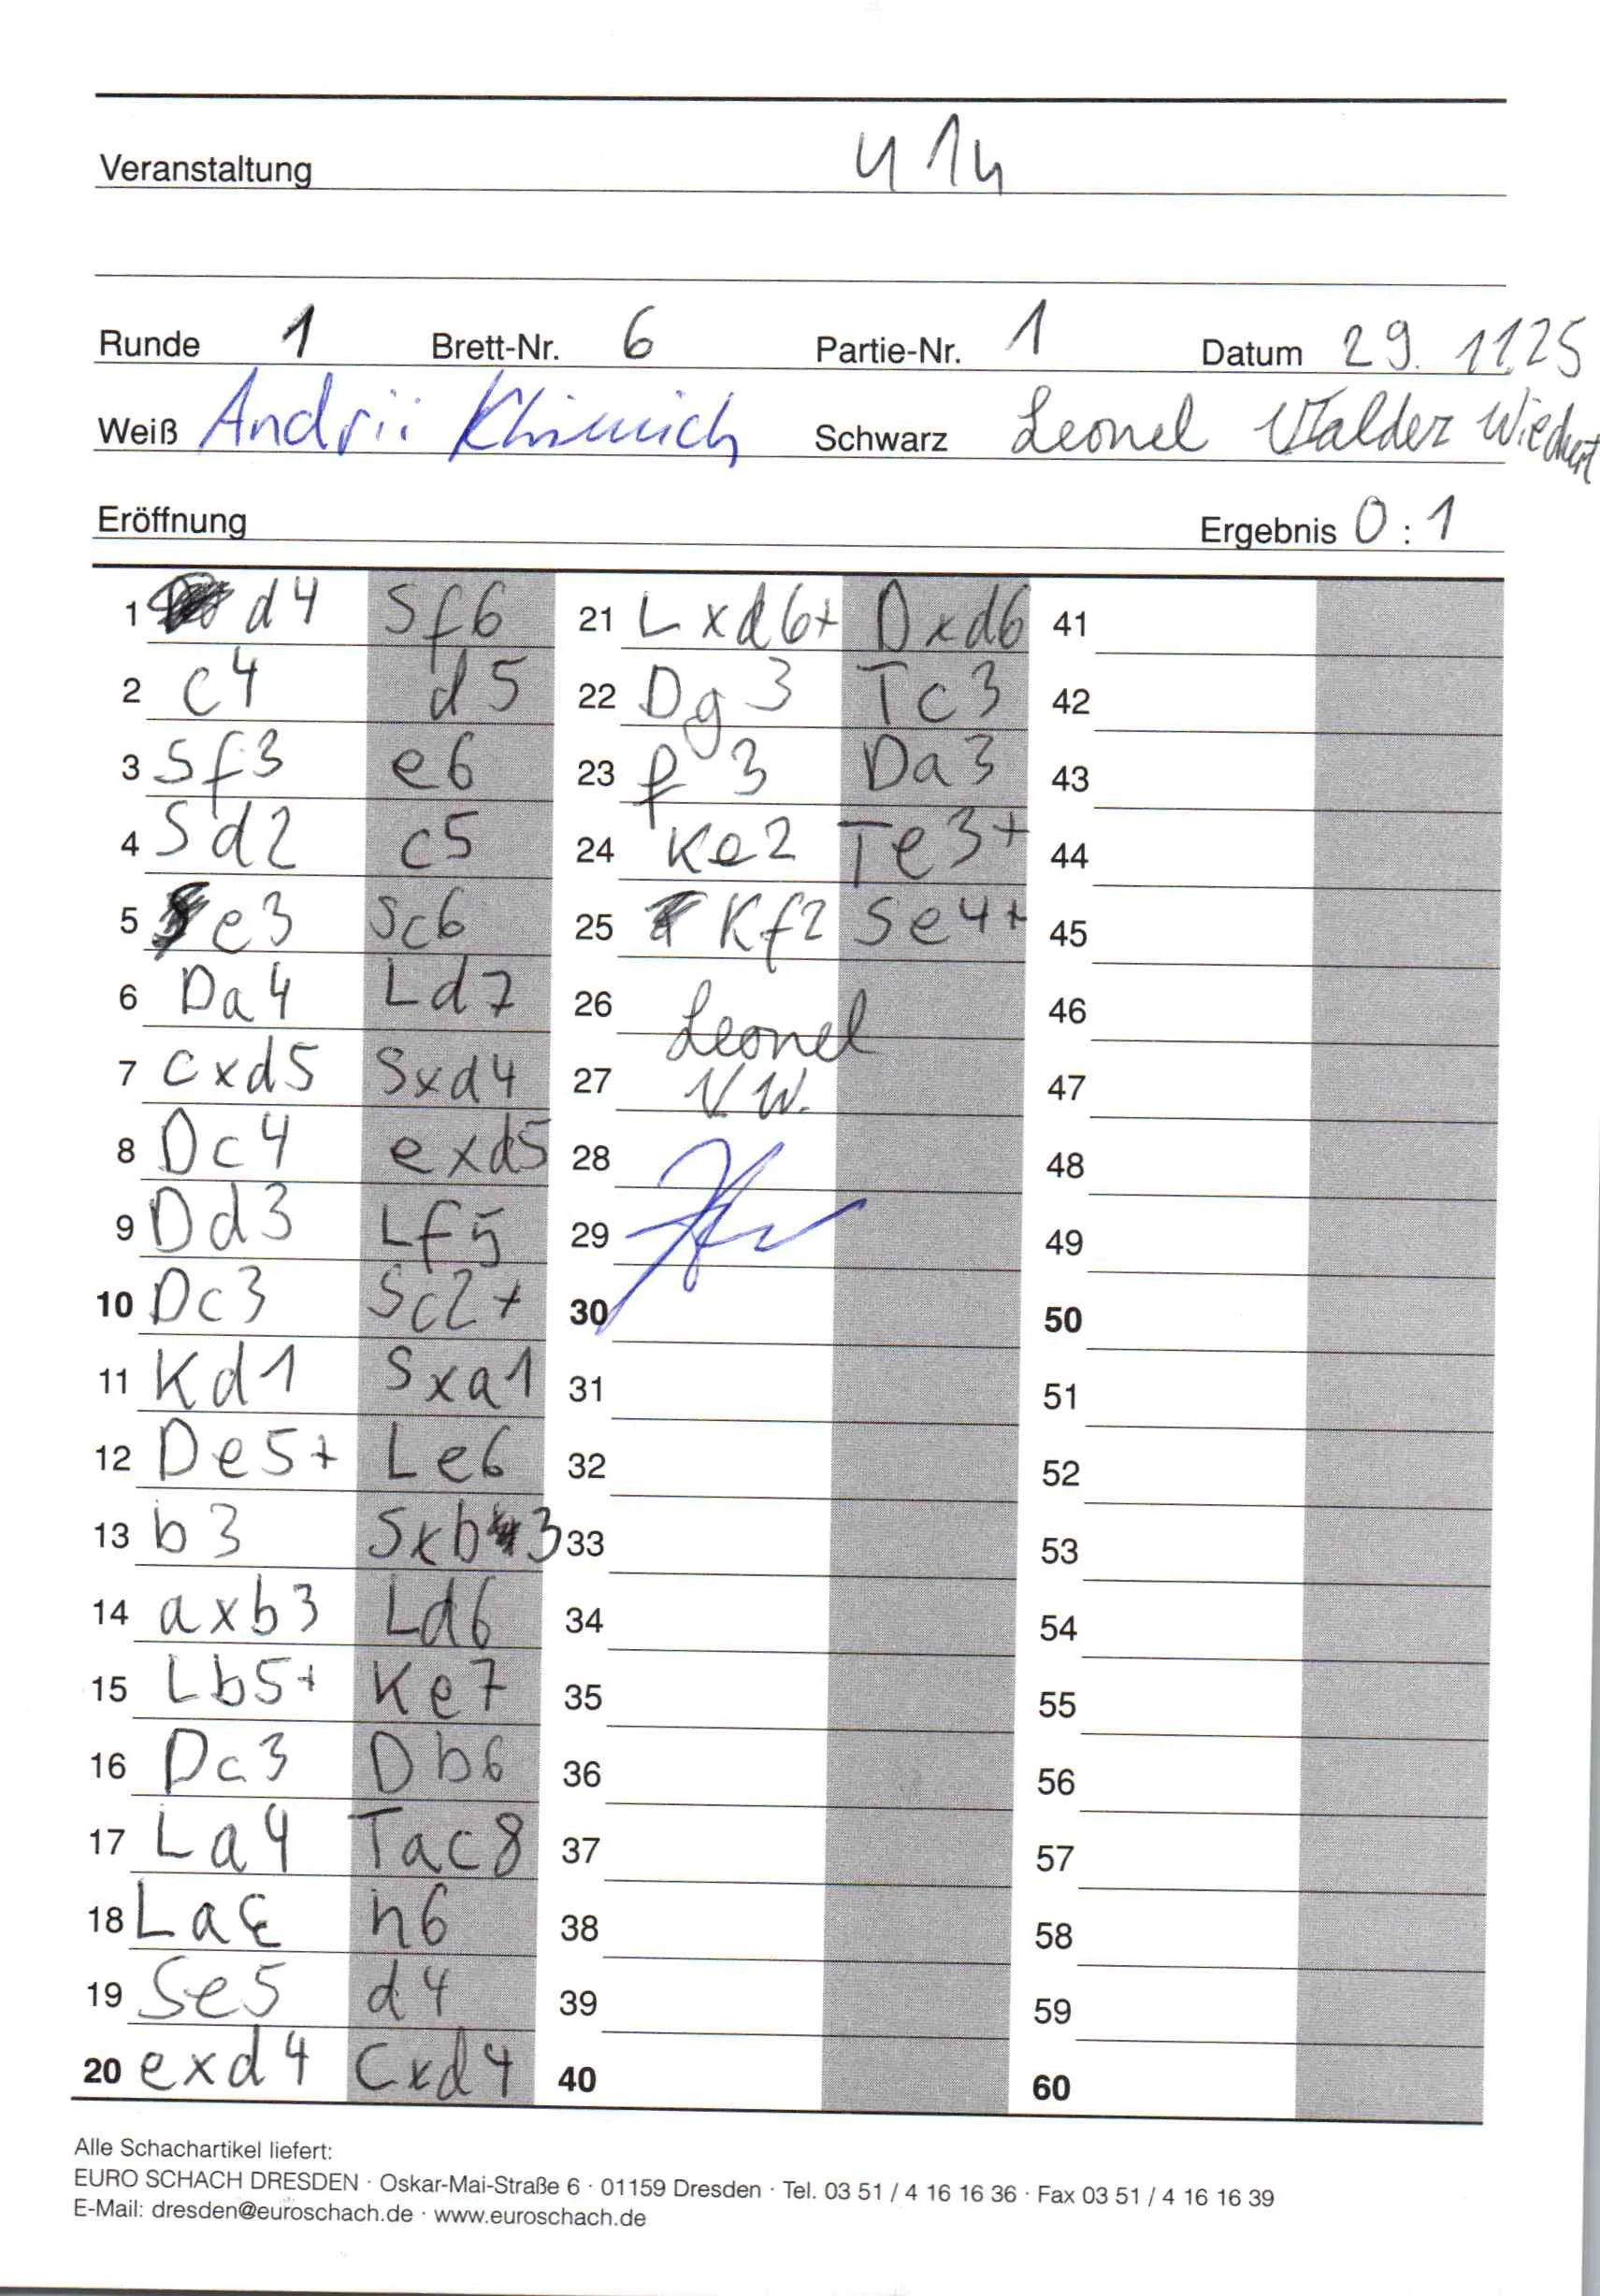 Veranstaltung U14
Runde 1 Brett-Nr. 6 Partie-Nr. 1 Datum 29.11.25
Weiß Andrii Schwarz Leonel Valder Wiechert
Eröffnung Ergebnis 0:1
1 d4 Sf6
2 c4 d5
3 Sf3 e6
4 Sd2 c5
5 e3 Sc6
6 Da4 Ld7
7 cxd5 Sxd4
8 Dc4 exd5
9 Dd3 Lf5
10 Dc3 Sc2+
11 Kd1 Sxa1
12 De5+ Le6
13 b3 Sxb3
14 axb3 Ld6
15 Lb5+ Ke7
16 Dc3 Db6
17 La4 Tac8
18 h6
19 Se5 d4
20 exd4 Cxd4
21 Lxd6+ Dxd6
22 Dg3 Tc3
23 f3 Da3
24 Ke2 Te3+
25 Kf2 Se4+
26 Leonel
27 V W.
28
29
30
31
32
33
34
35
36
37
38
39
40
41
42
43
44
45
46
47
48
49
50
51
52
53
54
55
56
57
58
59
60
Alle Schachartikel liefert:
EURO SCHACH DRESDEN · Oskar-Mai-Straße 6 · 01159 Dresden · Tel. 03 51 / 4 16 16 36 · Fax 03 51 / 4 16 16 39
E-Mail: dresden@euroschach.de · www.euroschach.de